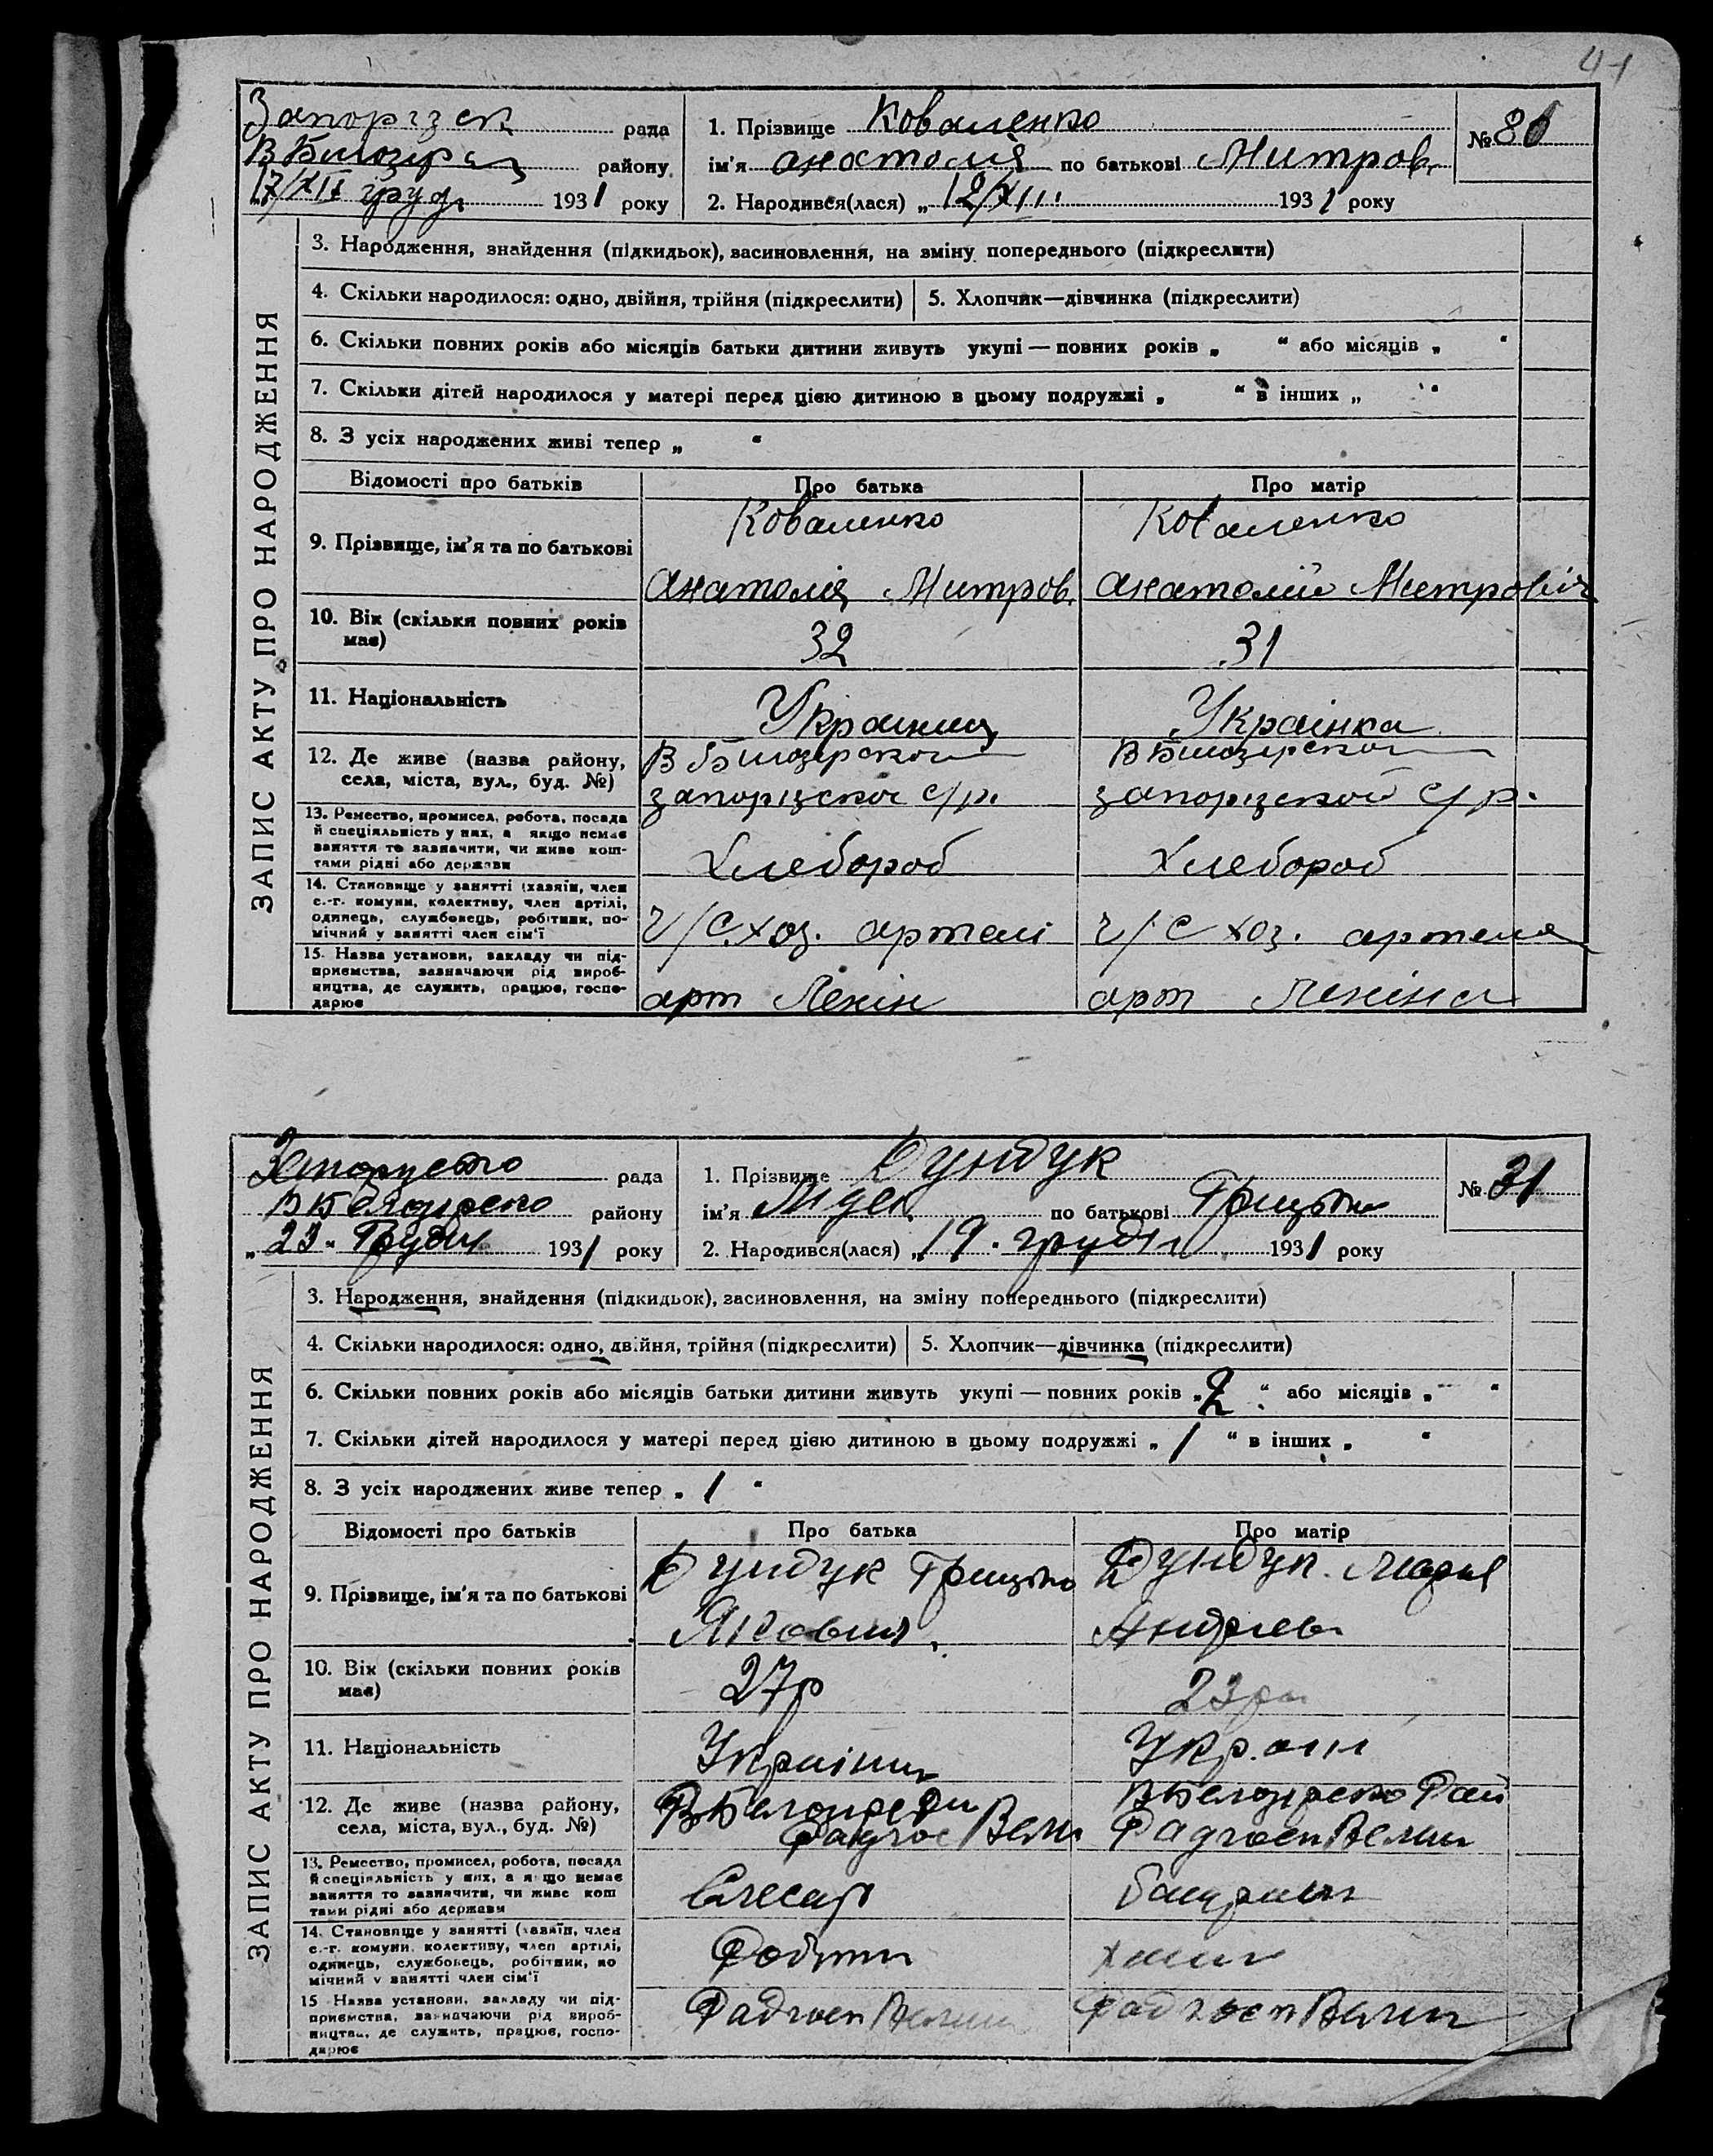 41
Запорізск рада
В Билозірсц району
17/XII груд. 1931 року
1. Прізвище Коваленко
ім'я анатолія по батькові Митров.
2. Народився(лася) „ 12/XII 1931 року
№ 80
ЗАПИС АКТУ ПРО НАРОДЖЕННЯ
3. Народження, знайдення (підкидьок), засиновлення, на зміну попереднього (підкреслити)
4. Скільки народилося: одно, двійня, трійня (підкреслити) 5. Хлопчик—дівчинка (підкреслити)
6. Скільки повних років або місяців батьки дитини живуть укупі — повних років „ “ або місяців „ “
7. Скільки дітей народилося у матері перед цією дитиною в цьому подружжі „ “ в інших „ “
8. З усіх народжених живі тепер „ “
Відомості про батьків Про батька Про матір
9. Прізвище, ім'я та по батькові
Коваленко
анатолія Митров.
Коваленко
анатолій Митровіч
10. Вік (скільки повних років
має)
32 31
11. Національність
Украинец Українка
12. Де живе (назва району,
села, міста, вул., буд. №)
В Билозірской
запорізскоі с/р.
В Билозірской
запорізской с/р.
13. Ремество, промисел, робота, посада
й спеціяльність у них, а якщо немає
заняття то зазначити, чи живе кош-
тами рідні або держави
Хлебороб Хлебороб
14. Становище у занятті (хазяїн, член
с.-г. комуни, колективу, член артілі,
одинець, службовець, робітник, по-
мічний у занятті член сім'ї
ч/С.хоз. артелі ч/С хоз. артеля
15. Назва установи, закладу чи під-
приємства, зазначаючи рід вироб-
ництва, де служить, працює, госпо-
дарює
арт Ленін арт Леніна
рада
району
„ 23 “ Грудн 1931 року
1. Прізвище Дундук
ім'я Лідея по батькові Грицько
2. Народився(лася) „ 19. грудн 1931 року
№ 31
ЗАПИС АКТУ ПРО НАРОДЖЕННЯ
3. Народження, знайдення (підкидьок), засиновлення, на зміну попереднього (підкреслити)
4. Скільки народилося: одно, двійня, трійня (підкреслити) 5. Хлопчик—дівчинка (підкреслити)
6. Скільки повних років або місяців батьки дитини живуть укупі — повних років „ 2 “ або місяців „ “
7. Скільки дітей народилося у матері перед цією дитиною в цьому подружжі „ 1 “ в інших „ “
8. З усіх народжених живе тепер „ 1 “
Відомості про батьків Про батька Про матір
9. Прізвище, ім'я та по батькові
Дундук Грицько
Якович
Дундук Мария
Андреев
10. Вік (скільки повних років
має)
27р 23р
11. Національність
Україин Укр.
12. Де живе (назва району,
села, міста, вул., буд. №)
Рай
13. Ремество, промисел, робота, посада
й спеціяльність у них, а якщо немає
заняття то зазначити, чи живе кош
тами рідні або держави
Слесар
14. Становище у занятті (хазяїн, член
с.-г. комуни, колективу, член артілі,
одинець, службовець, робітник, по
мічний у занятті член сім'ї
Робітн
15 Назва установи, закладу чи під-
приємства, зазначаючи рід вироб-
ництва, де служить, працює, госпо-
дарює
Радгосп Радгосп